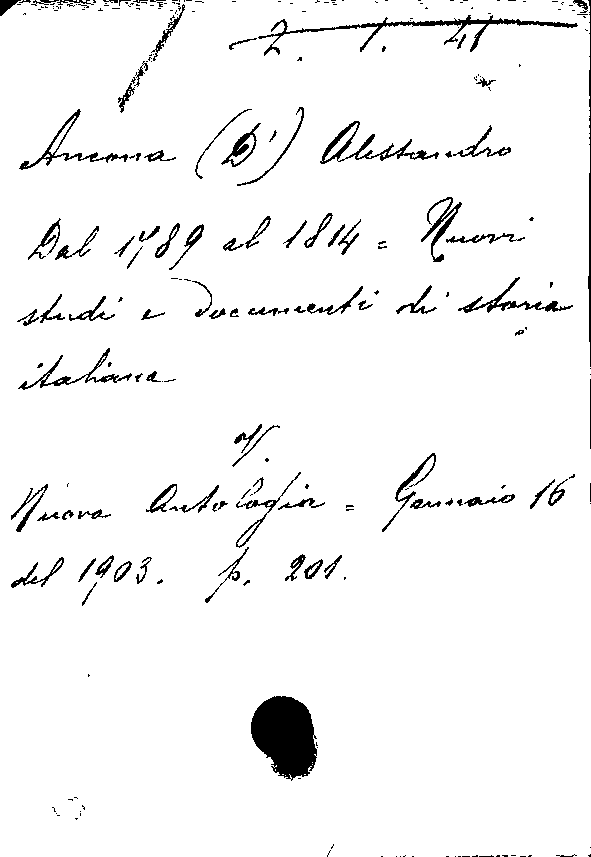 2. 1. 41
Ancona (D') Alessandro
Dal 1789 al 1814 = Nuovi
studi e documenti di storia
italiana
V.
Nuova Antologia = Gennaio 16
del 1903. p. 201.